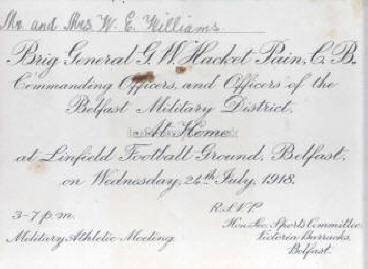 Mr. and Mrs W. E. Williams.
Brig General G. W. Hacket Pain, C.B.
Commanding Officers, and Officers of the
Belfast Military District,
At Home
at Linfield Football Ground, Belfast,
on Wednesday, 24th July, 1918.
3-7 p.m. R.S.V.P.
Hon. Sec. Sports Committee
Military Athletic Meeting. Victoria Barracks,
Belfast.